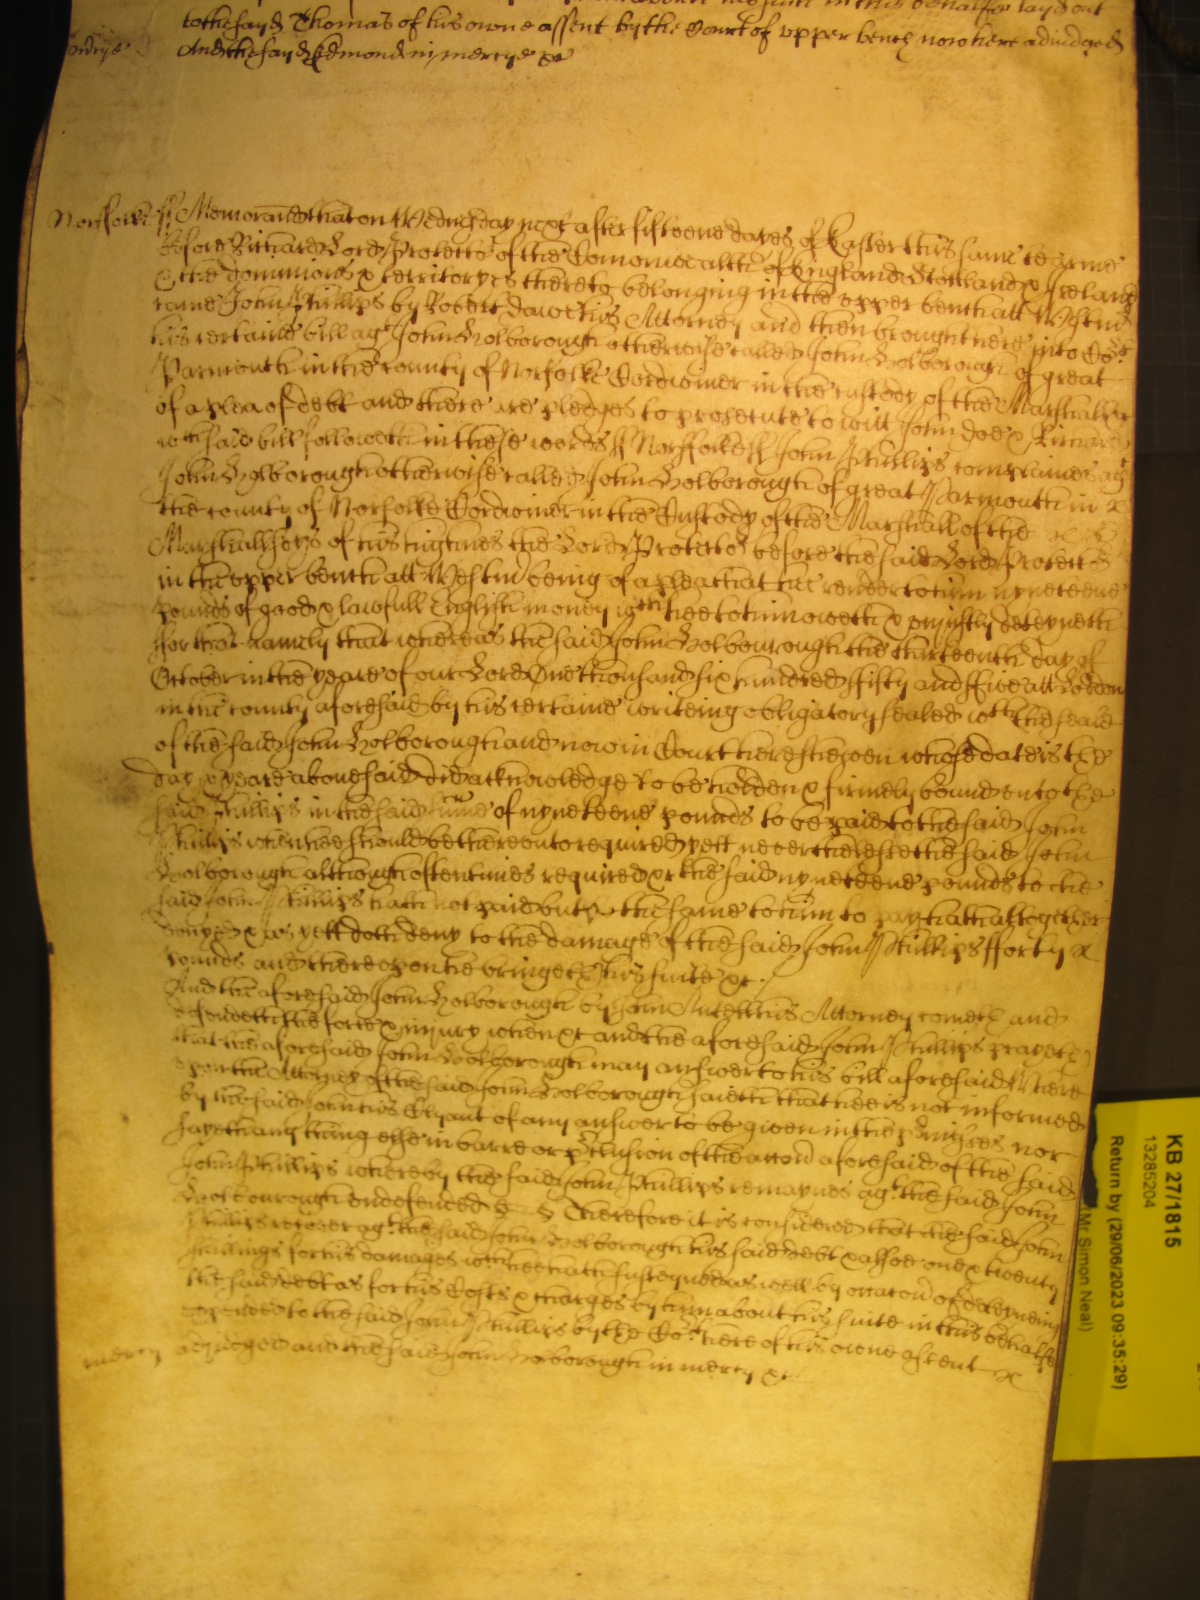 to the sayd Thomas of his owne assent by the Court of upper bench now here adiudged
And the sayd Edmond in mercye &c
Norffolke ss Memorand that on Wednesday next after fifteene dayes of Easter this same terme
before Richard Lord Protector of the Comonwealth of England Scotland & Ireland
& the dominions & territoryes thereto belonging in the upper bench att Westmr
came John Phillips by Robert Dawes his Attorney and then brought here into Cort
his certaine bill agt John Holborough otherwise called John Holborough of great
Yarmouth in the county of Norfolke Cordwiner in the custody of the Marshall &c
of a plea of debt and there are pledges to prosecute to witt John Doe & Richard
wch said bill followeth in these words ss Norffolke ss John Phillips complaines agt
John Holborough otherwise called John Holborough of great Yarmouth in
the county of Norfolke Cordwiner in the Custody of the Marshall of the
Marshallseys of his highnes the Lord Protector before the said Lord Protector
in the upper bench att Westmr being of a plea that hee render to him nyneteene
pounds of good & lawfull English money wch hee to him oweth & uniustly deteyneth
For that namely that whereas the said John Holbourough the thirteenth day of
October in the yeare of our Lord One thousand six hundred fifty and five att
in the county aforesaid by his certaine writeing obligatory sealed wth the seale
of the said John Holborough and now in Court here shewen whose date is the
day & yeare abovesaid did acknowledge to be holden & firmely bound unto the
said Phillips in the said sume of nyneteene pounds to be paid to the said John
Phillips when hee should be thereunto required yett neverthelesse the said John
Holborough although oftentimes required &c the said nyneteene pounds to the
said John Phillips hath not paid but the same to him to pay hath altogether
denyed & as yett doth deny to the damage of the said John Phillips fforty
pounds and thereupon he bringeth his suite &c.
And the aforesaid John Holborough by his Attorney cometh and
defendeth the force & iniury when &c and the aforesaid John Phillips prayeth
that the aforesaid John Holborough may answer to his bill aforesaid Where
upon the Attorney of the said John Holborough saieth that hee is not informed
by the said John his Clyant of any answer to be given in the prmisses nor
sayeth any thing else in barre or prclusion of the accon aforesaid of the said
John Phillips whereby the said John Phillips remaynes agt the said John
Holbourough undefended Therefore it is considered that the said John
Phillips recover agt the said John Holborough his said debt & alsoe one & twenty
shillings for his damages wch hee hath susteyned as well by occacon of deteyneing
the said debt as for his Costs & charges by him about his suite in this behalfe
expended to the said John Phillips by the Cort here of his owne assent
mercy adiudged and the said John Holborough in mercy &c
KB 27/1815
13285204
Return by (29/06/2023 09:35:29)
(Mr Simon Neal)